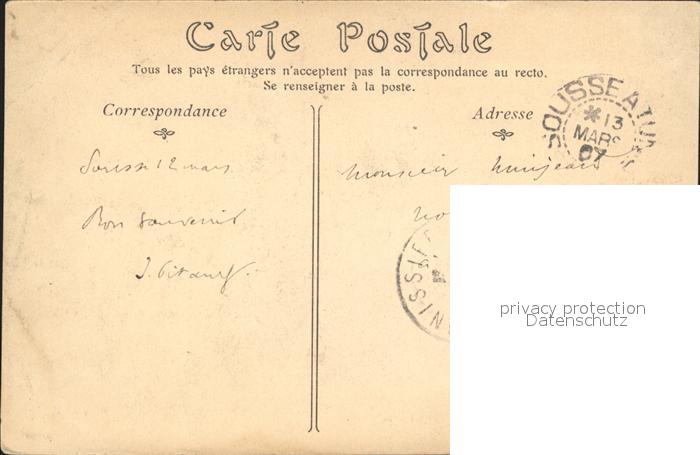 Carte Postale
Tous les pays étrangers n'acceptent pas la correspondance au recto.
Se renseigner à la poste.
Correspondance
Adresse
SOUSSE
13
MARS
07
Sousse 12 mars
Bon souvenir
Monsieur
privacy protection
Datenschutz